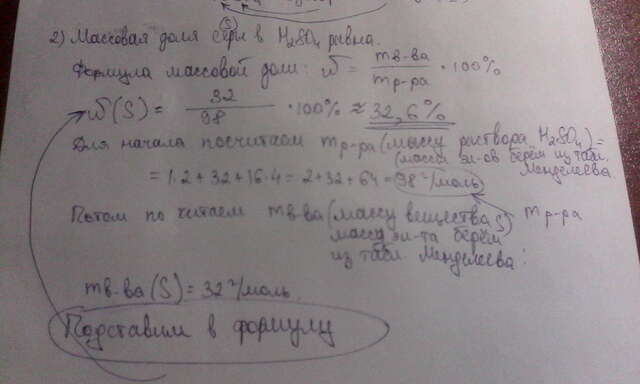 2) Массовая доля серы (S) в H₂SO₄ равна.
Формула массовой доли: ω = mв-ва / mр-ра · 100%
ω(S) = 32 / 98 · 100% ≈ 32,6%
Для начала посчитаем mр-ра (массу раствора H₂SO₄) =
(массы эл-ов берём из табл. Менделеева
= 1·2+32+16·4 = 2+32+64 = 98 г/моль
Потом по читаем mв-ва (массу вещества S) mр-ра
массу эл-та берём
из табл. Менделеева:
mв-ва (S) = 32 г/моль.
Подставим в формулу